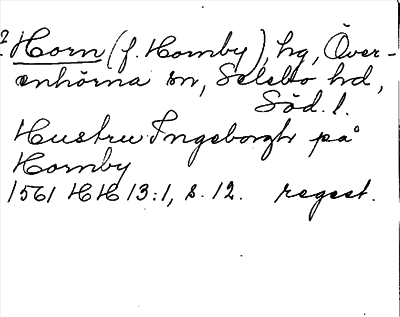 ? Horn (f. Hornby), hg, Över-
enhörna sn, Selebo hd,
Söd. l.
Hustru Ingeborgh på
Hornby
1561 HH 13:1, s. 12. regest.